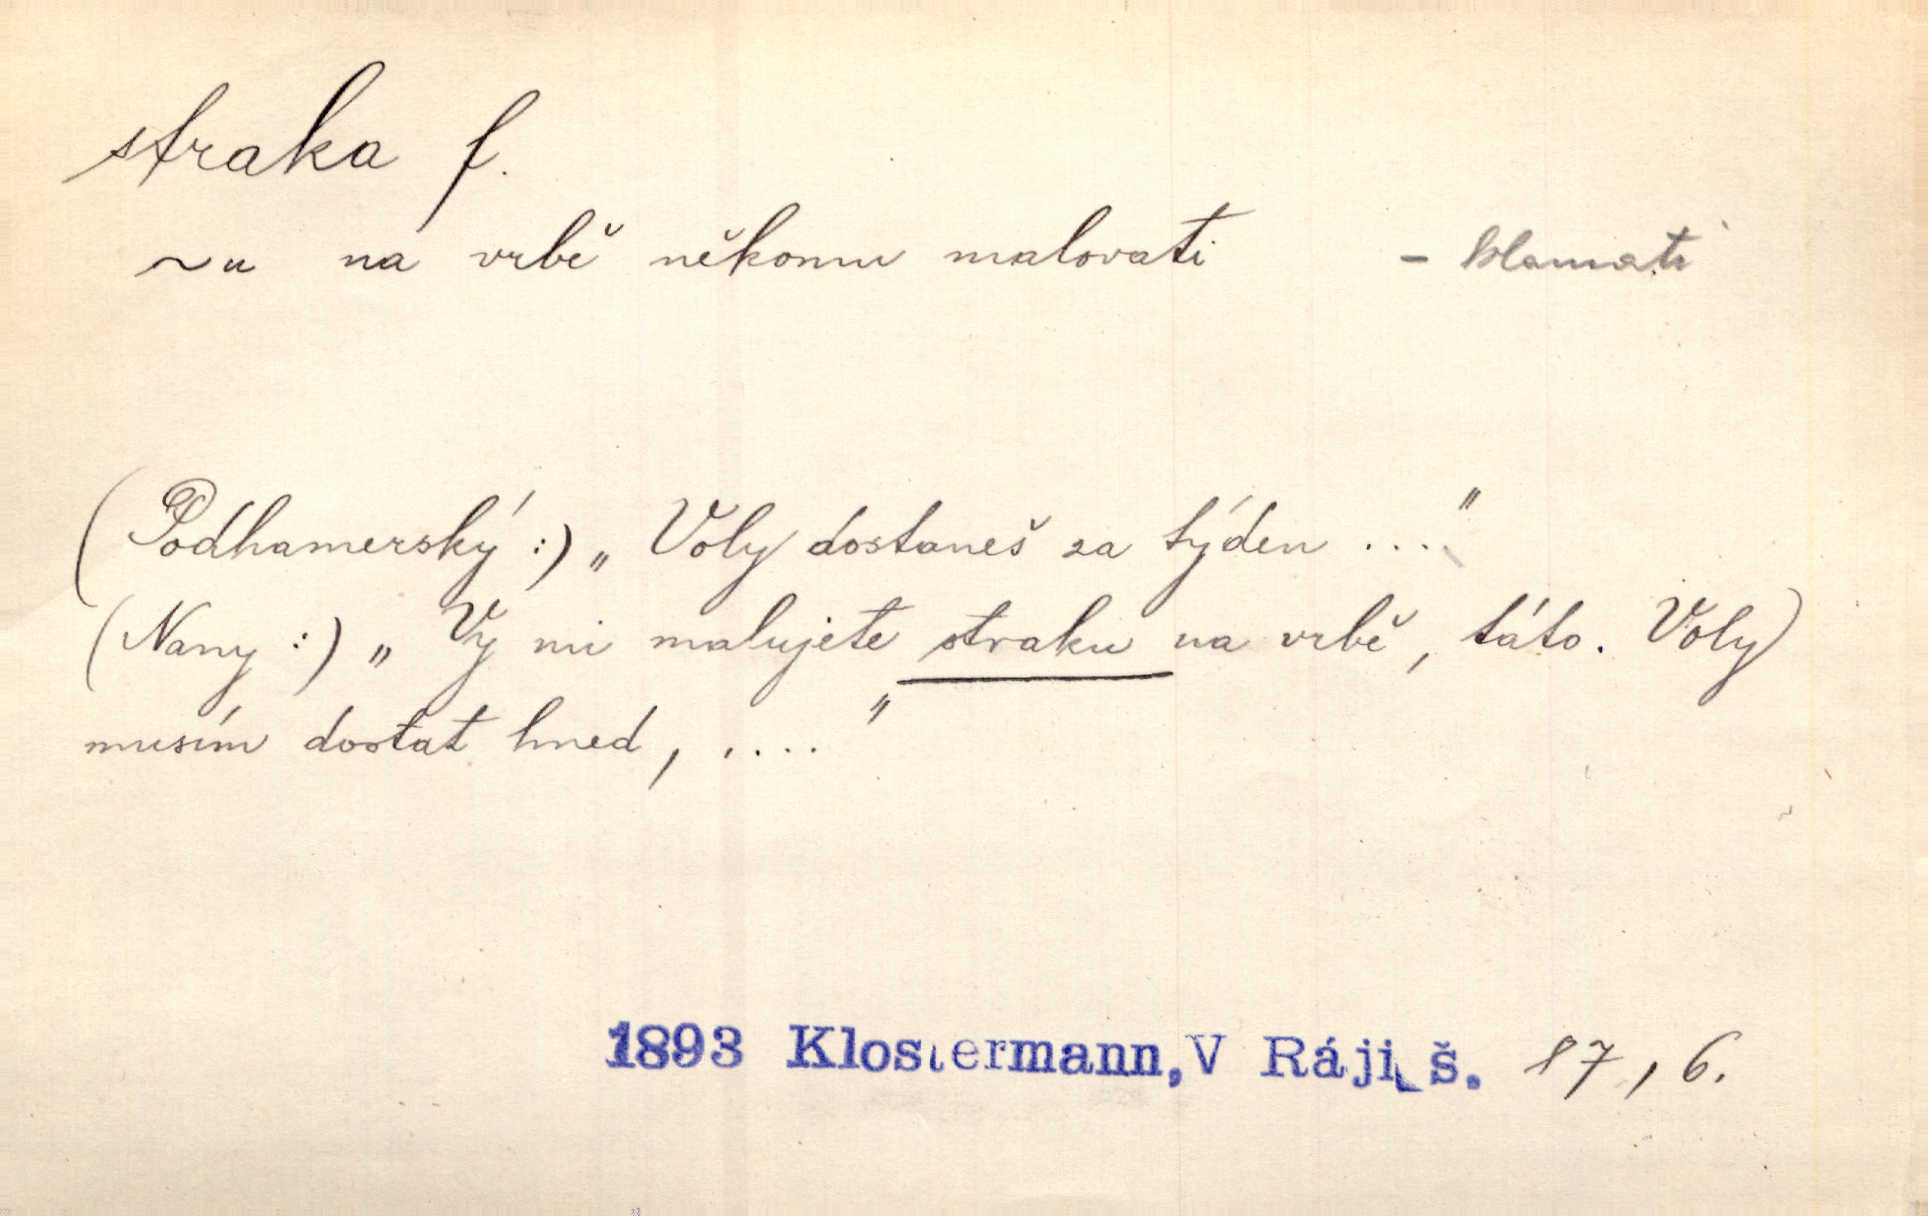 straka f.
~u na vrbě někomu malovati - klamati
(Podhamerský:) „Voly dostaneš za týden ...."
(Nany:) „Vy mi malujete straku na vrbě, táto. Voly
musím dostat hned, ...."
1893 Klostermann, V Ráji š. 87, 6.